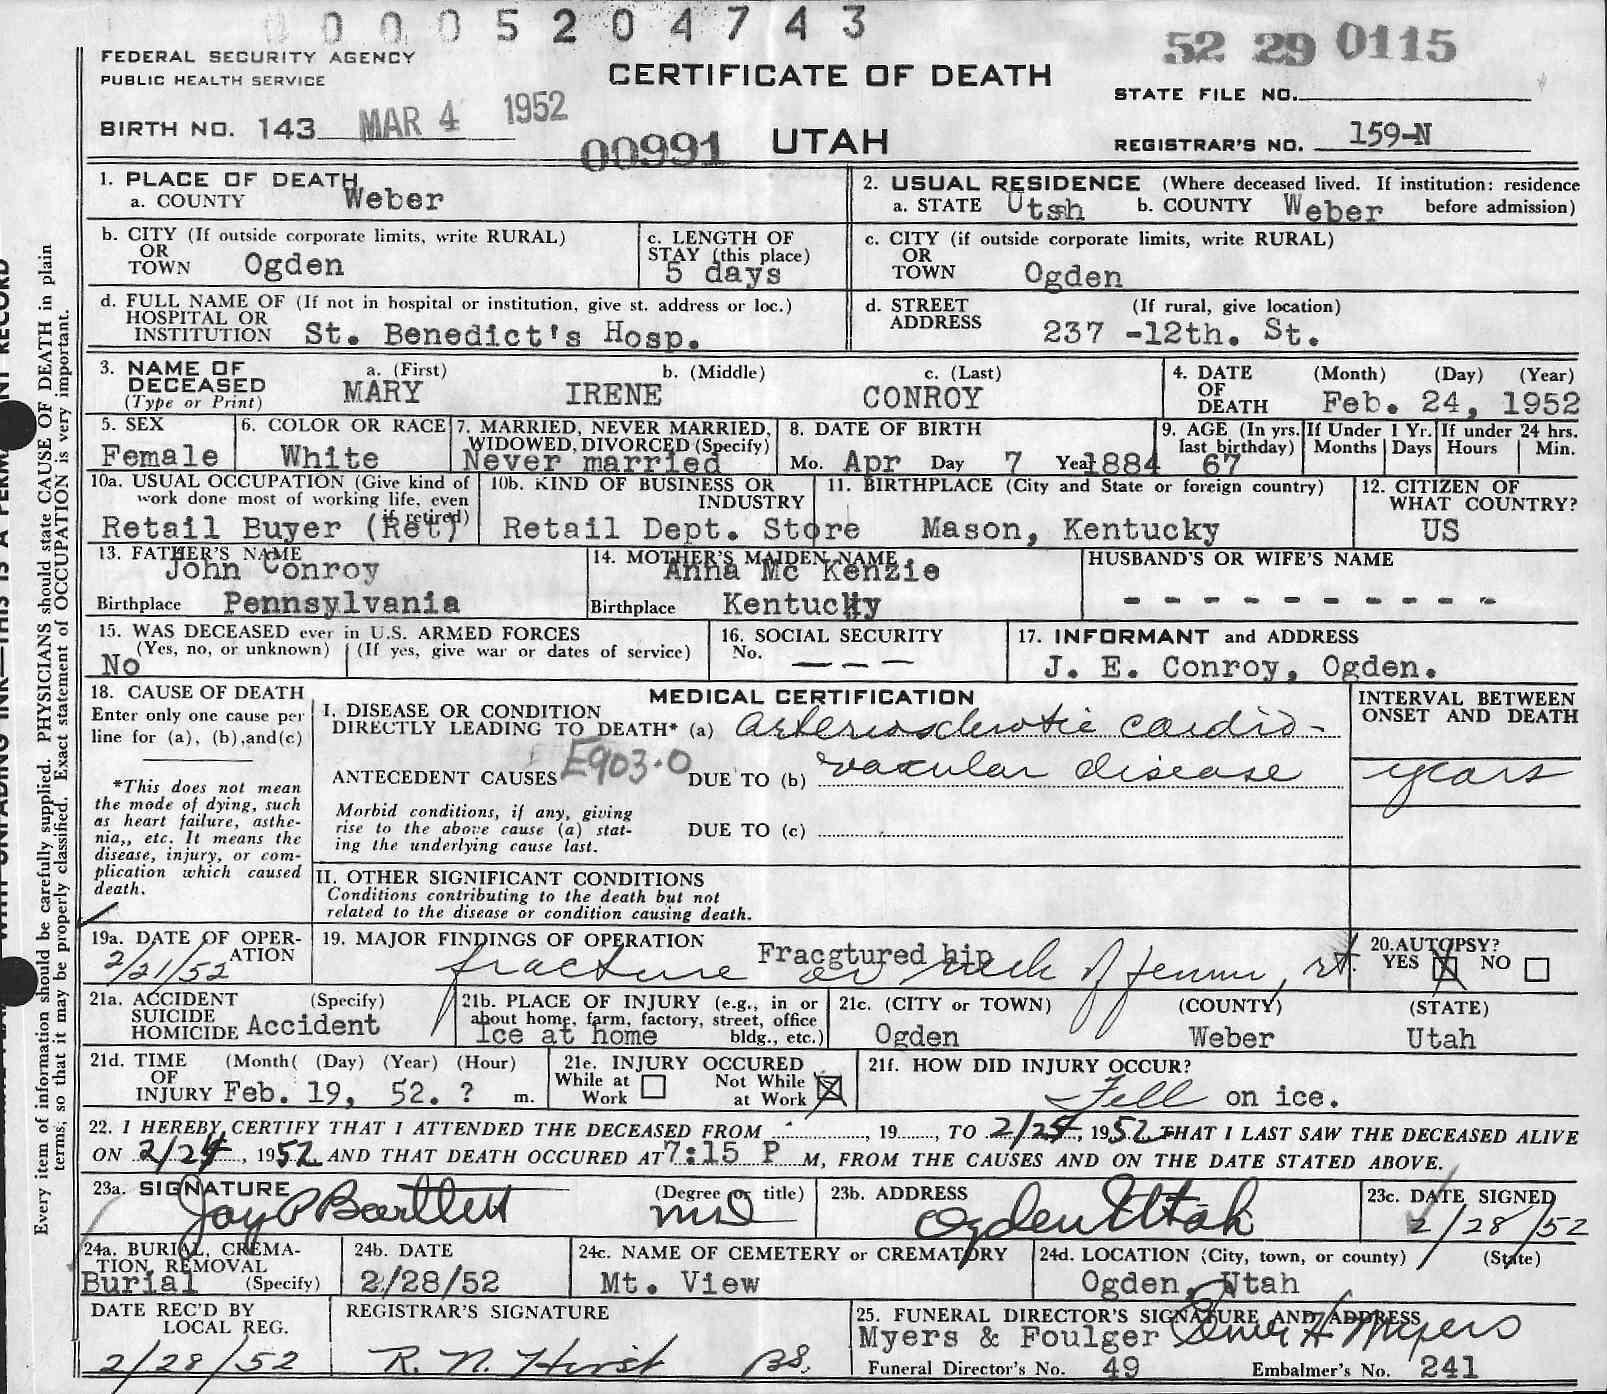 0 0 0 5 2 0 4 7 4 3
52 29 0115
FEDERAL SECURITY AGENCY
PUBLIC HEALTH SERVICE
CERTIFICATE OF DEATH
STATE FILE NO.
BIRTH NO. 143 MAR 4 1952
00991 UTAH
REGISTRAR'S NO. 159-N
1. PLACE OF DEATH
a. COUNTY Weber
2. USUAL RESIDENCE (Where deceased lived. If institution: residence
a. STATE Utsh b. COUNTY Weber before admission)
b. CITY (If outside corporate limits, write RURAL)
OR
TOWN Ogden
c. LENGTH OF
STAY (this place)
5 days
c. CITY (if outside corporate limits, write RURAL)
OR
TOWN Ogden
d. FULL NAME OF (If not in hospital or institution, give st. address or loc.)
HOSPITAL OR
INSTITUTION St. Benedict's Hosp.
d. STREET (If rural, give location)
ADDRESS 237 -12th. St.
3. NAME OF DECEASED (Type or Print)
a. (First) b. (Middle) c. (Last)
MARY IRENE CONROY
4. DATE OF DEATH (Month) (Day) (Year)
Feb. 24, 1952
5. SEX
Female
6. COLOR OR RACE
White
7. MARRIED, NEVER MARRIED,
WIDOWED, DIVORCED (Specify)
Never married
8. DATE OF BIRTH
Mo. Apr Day 7 Year 1884
9. AGE (In yrs. last birthday) 67
If Under 1 Yr. Months Days
If under 24 hrs. Hours Min.
10a. USUAL OCCUPATION (Give kind of
work done most of working life, even
if retired)
Retail Buyer (Ret)
10b. KIND OF BUSINESS OR
INDUSTRY
Retail Dept. Store
11. BIRTHPLACE (City and State or foreign country)
Mason, Kentucky
12. CITIZEN OF
WHAT COUNTRY?
US
13. FATHER'S NAME
John Conroy
Birthplace Pennsylvania
14. MOTHER'S MAIDEN NAME
Anna Mc Kenzie
Birthplace Kentucky
HUSBAND'S OR WIFE'S NAME
- - - - - - - - - -
15. WAS DECEASED ever in U.S. ARMED FORCES
(Yes, no, or unknown) (If yes, give war or dates of service)
No
16. SOCIAL SECURITY
No. - - - -
17. INFORMANT and ADDRESS
J. E. Conroy, Ogden.
18. CAUSE OF DEATH
Enter only one cause per
line for (a), (b),and(c)
*This does not mean
the mode of dying, such
as heart failure, asthe-
nia,, etc. It means the
disease, injury, or com-
plication which caused
death.
MEDICAL CERTIFICATION
I. DISEASE OR CONDITION
DIRECTLY LEADING TO DEATH* (a) Arteriosclerotic cardio-
ANTECEDENT CAUSES E903.0 DUE TO (b) vascular disease
Morbid conditions, if any, giving
rise to the above cause (a) stat-
ing the underlying cause last.
DUE TO (c)
INTERVAL BETWEEN
ONSET AND DEATH
years
II. OTHER SIGNIFICANT CONDITIONS
Conditions contributing to the death but not
related to the disease or condition causing death.
19a. DATE OF OPER-
ATION
2/21/52
19. MAJOR FINDINGS OF OPERATION Fracgtured hip
fracture neck of femur, rt.
20. AUTOPSY?
YES NO
21a. ACCIDENT (Specify)
SUICIDE
HOMICIDE Accident
21b. PLACE OF INJURY (e.g., in or
about home, farm, factory, street, office
bldg., etc.)
Ice at home
21c. (CITY or TOWN) (COUNTY) (STATE)
Ogden Weber Utah
21d. TIME (Month( (Day) (Year) (Hour)
OF
INJURY Feb. 19, 52. ? m.
21e. INJURY OCCURED
While at Work Not While at Work
21f. HOW DID INJURY OCCUR?
Fell on ice.
22. I HEREBY CERTIFY THAT I ATTENDED THE DECEASED FROM , 19 , TO 2/24, 1952, THAT I LAST SAW THE DECEASED ALIVE
ON 2/24, 1952 AND THAT DEATH OCCURED AT 7:15 P M, FROM THE CAUSES AND ON THE DATE STATED ABOVE.
23a. SIGNATURE (Degree or title)
Jay P Bartlett MD
23b. ADDRESS
Ogden Utah
23c. DATE SIGNED
2/28/52
24a. BURIAL, CREMA-
TION, REMOVAL
Burial (Specify)
24b. DATE
2/28/52
24c. NAME OF CEMETERY or CREMATORY
Mt. View
24d. LOCATION (City, town, or county) (State)
Ogden, Utah
DATE REC'D BY
LOCAL REG.
2/28/52
REGISTRAR'S SIGNATURE
R. N. Hirst
25. FUNERAL DIRECTOR'S SIGNATURE AND ADDRESS
Myers & Foulger H Myers
Funeral Director's No. 49 Embalmer's No. 241
Every item of information should be carefully supplied. PHYSICIANS should state CAUSE OF DEATH in plain
terms, so that it may be properly classified. Exact statement of OCCUPATION is very important.